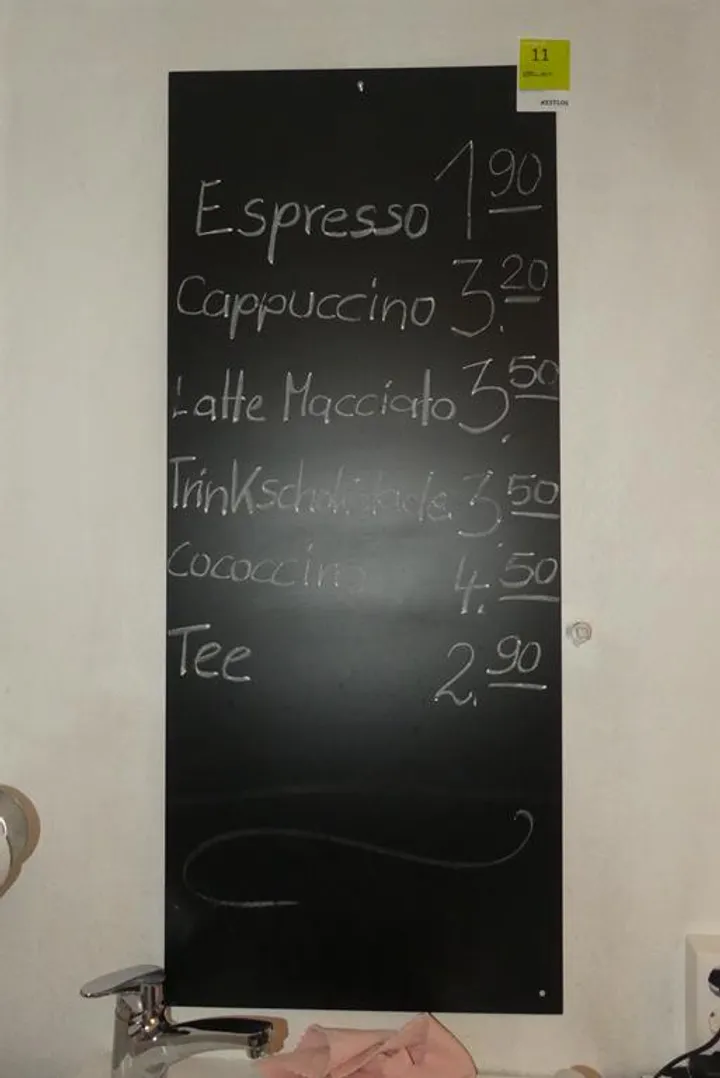 11
#337106
Espresso 1 90
Cappuccino 3.20
Latte Macciato 3.50
Trinkschokolade 3.50
Cococcino 4.50
Tee 2.90